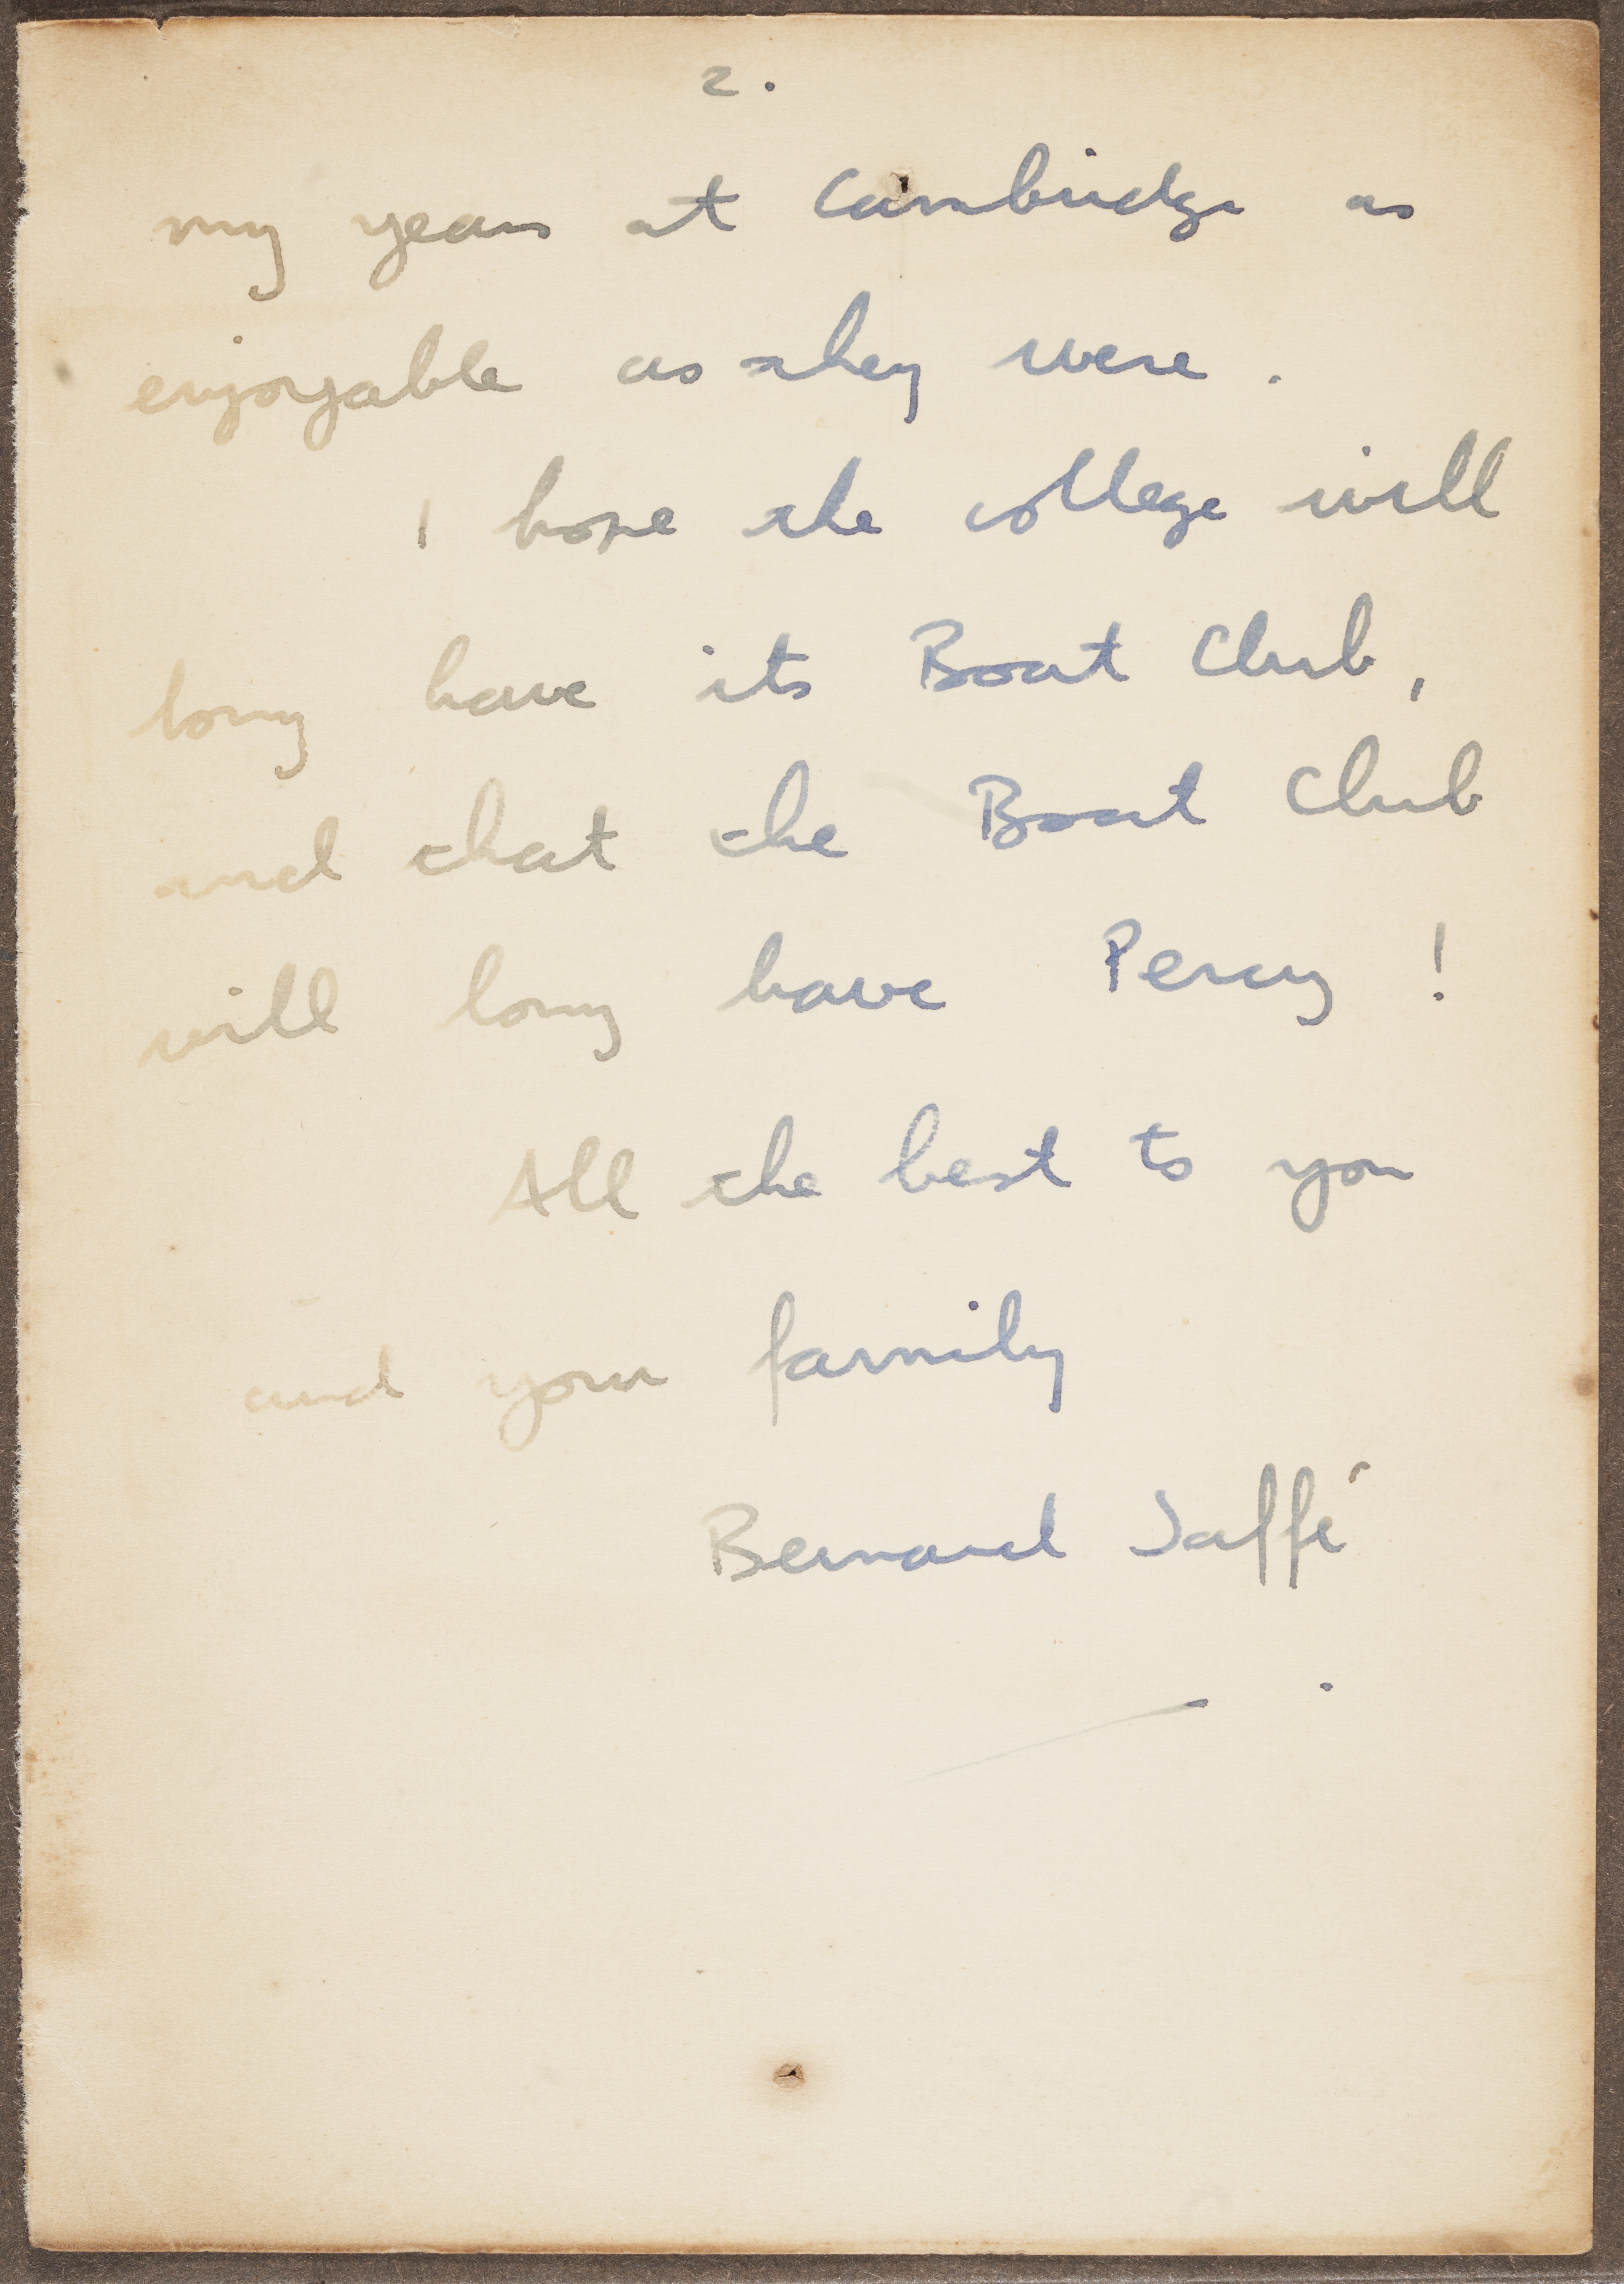 2.
my years at Cambridge as
enjoyable as they were.
I hope the college will
long have its Boat Club,
and that the Boat Club
will long have Percy!
All the best to you
and your family
Bernard Jaffé